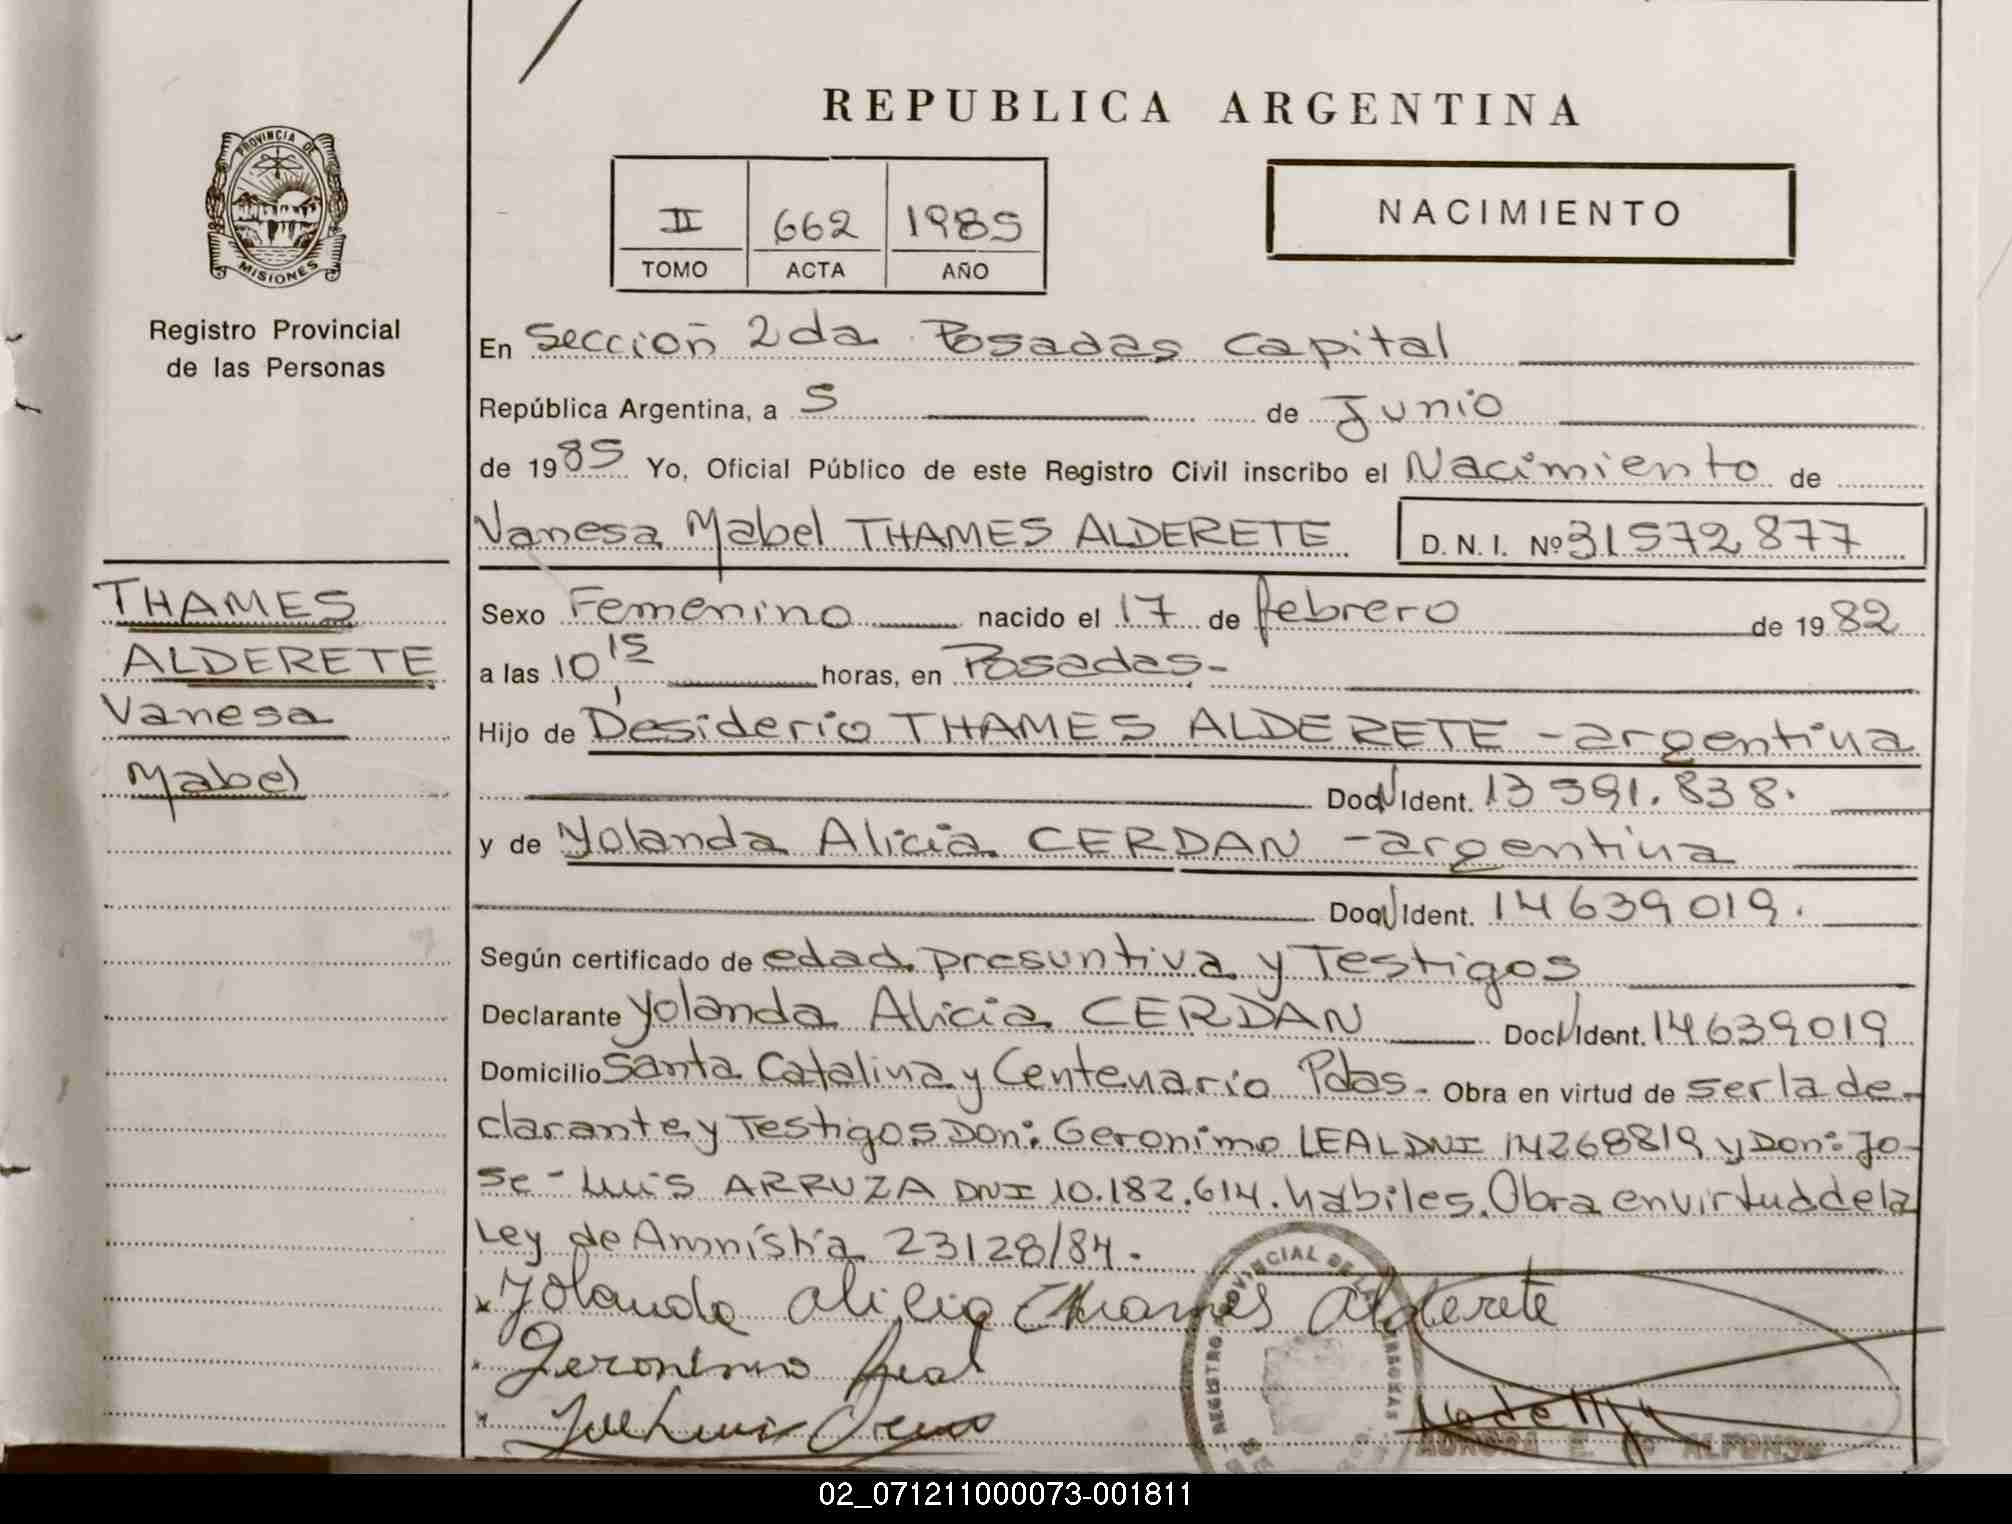 REPUBLICA ARGENTINA
PROVINCIA DE
MISIONES
Registro Provincial
de las Personas
II 662 1985
TOMO ACTA AÑO
NACIMIENTO
En Sección 2da Posadas Capital
República Argentina, a 5 de Junio
de 1985 Yo, Oficial Público de este Registro Civil inscribo el Nacimiento de
Vanesa Mabel THAMES ALDERETE D. N. I. Nº 31572877
THAMES
ALDERETE
Vanesa
Mabel
Sexo Femenino nacido el 17 de febrero de 1982
a las 10,15 horas, en Posadas-
Hijo de Desiderio THAMES ALDERETE - argentina
Doc N Ident. 13 591.838.
y de Yolanda Alicia CERDAN - argentina
Doc N Ident. 14639019.
Según certificado de edad presuntiva y Testigos
Declarante Yolanda Alicia CERDAN Doc N Ident. 14639019
Domicilio Santa Catalina y Centenario Pdas- Obra en virtud de ser la de-
clarante y Testigos Don: Geronimo LEAL DNI 14268819 y Don: Jo-
se-Luis ARRUZA DNI 10.182.614. habiles. Obra en virtud de la
Ley de Amnistia 23128/84.
x Yolanda Alicia Thames Alderete
x Geronimo Leal
x
REGISTRO PROVINCIAL DE LAS PERSONAS
02_071211000073-001811